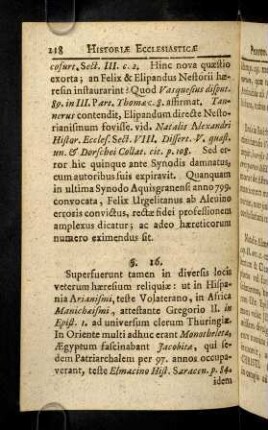 218 HISTORIÆ ECCLESIASTICÆ
cosure, Sect. III. c. 2. Hinc nova quæstio
exorta; an Felix & Elipandus Nestorii hæ-
resin instaurarint? Quod Vasquesius disput.
89. in III. Part. Thomæ c. 8. affirmat, Tan-
nerus contendit, Elipandum directe Nesto-
rianismum fovisse. vid. Natalis Alexandri
Histor. Eccles. Sect. VIII. Dissert. V. quæst.
un. & Dorschei Collat. cit. p. 108. Sed er-
ror hic quinque ante Synodis damnatus,
cum autoribus suis expiravit. Quanquam
in ultima Synodo Aquisgranensi anno 799.
convocata, Felix Urgelitanus ab Alcuino
erroris convictus, rectæ fidei professionem
amplexus dicatur; ac adeo hæreticorum
numero eximendus sit.
§. 16.
Supersuerunt tamen in diversis locis
veterum hæresium reliquiæ: ut in Hispa-
nia Arianismi, teste Volaterano, in Africa
Manichaismi, attestante Gregorio II. in
Epist. 1. ad universum clerum Thuringiæ.
In Oriente multi adhuc erant Monothelitæ,
Ægyptum fascinabant Jacobitæ, qui se-
dem Patriarchalem per 97. annos occupa-
verant, teste Elmacino Hist. Saracen. p. 84.
idem